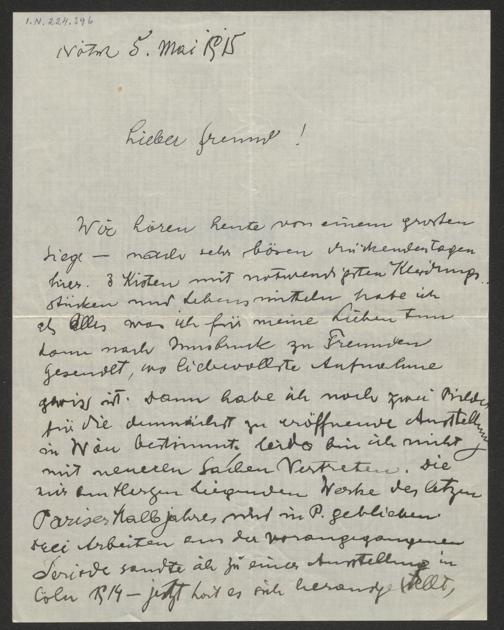 I.N. 224.396
Nötsch 5. Mai 1915
Lieber Freund!
Wir hören heute von einem großen
Siege — nach sehr bösen drückenden tagen
hier. 3 Kisten mit notwendigsten Kleidungs-
stücken und Lebensmitteln habe ich
als Alles was ich für meine Lieben tun
kann nach Innsbruck zu Freunden
gesendet, wo liebevollste Aufnahme
gewiss ist. Dann habe ich noch zwei Bilder
für die demnächst zu eröffnende Ausstellung
in Wien bestimmt. leider bin ich nicht
mit neueren Sachen Vertreten. Die
mir am Herzen liegenden Werke des letzten
Pariser Halbjahres sind in P. geblieben.
drei Arbeiten aus der vorangegangenen
Periode sandte ich zu einer Ausstellung in
Cöln 1914 — jetzt hat es sich herausgestellt,